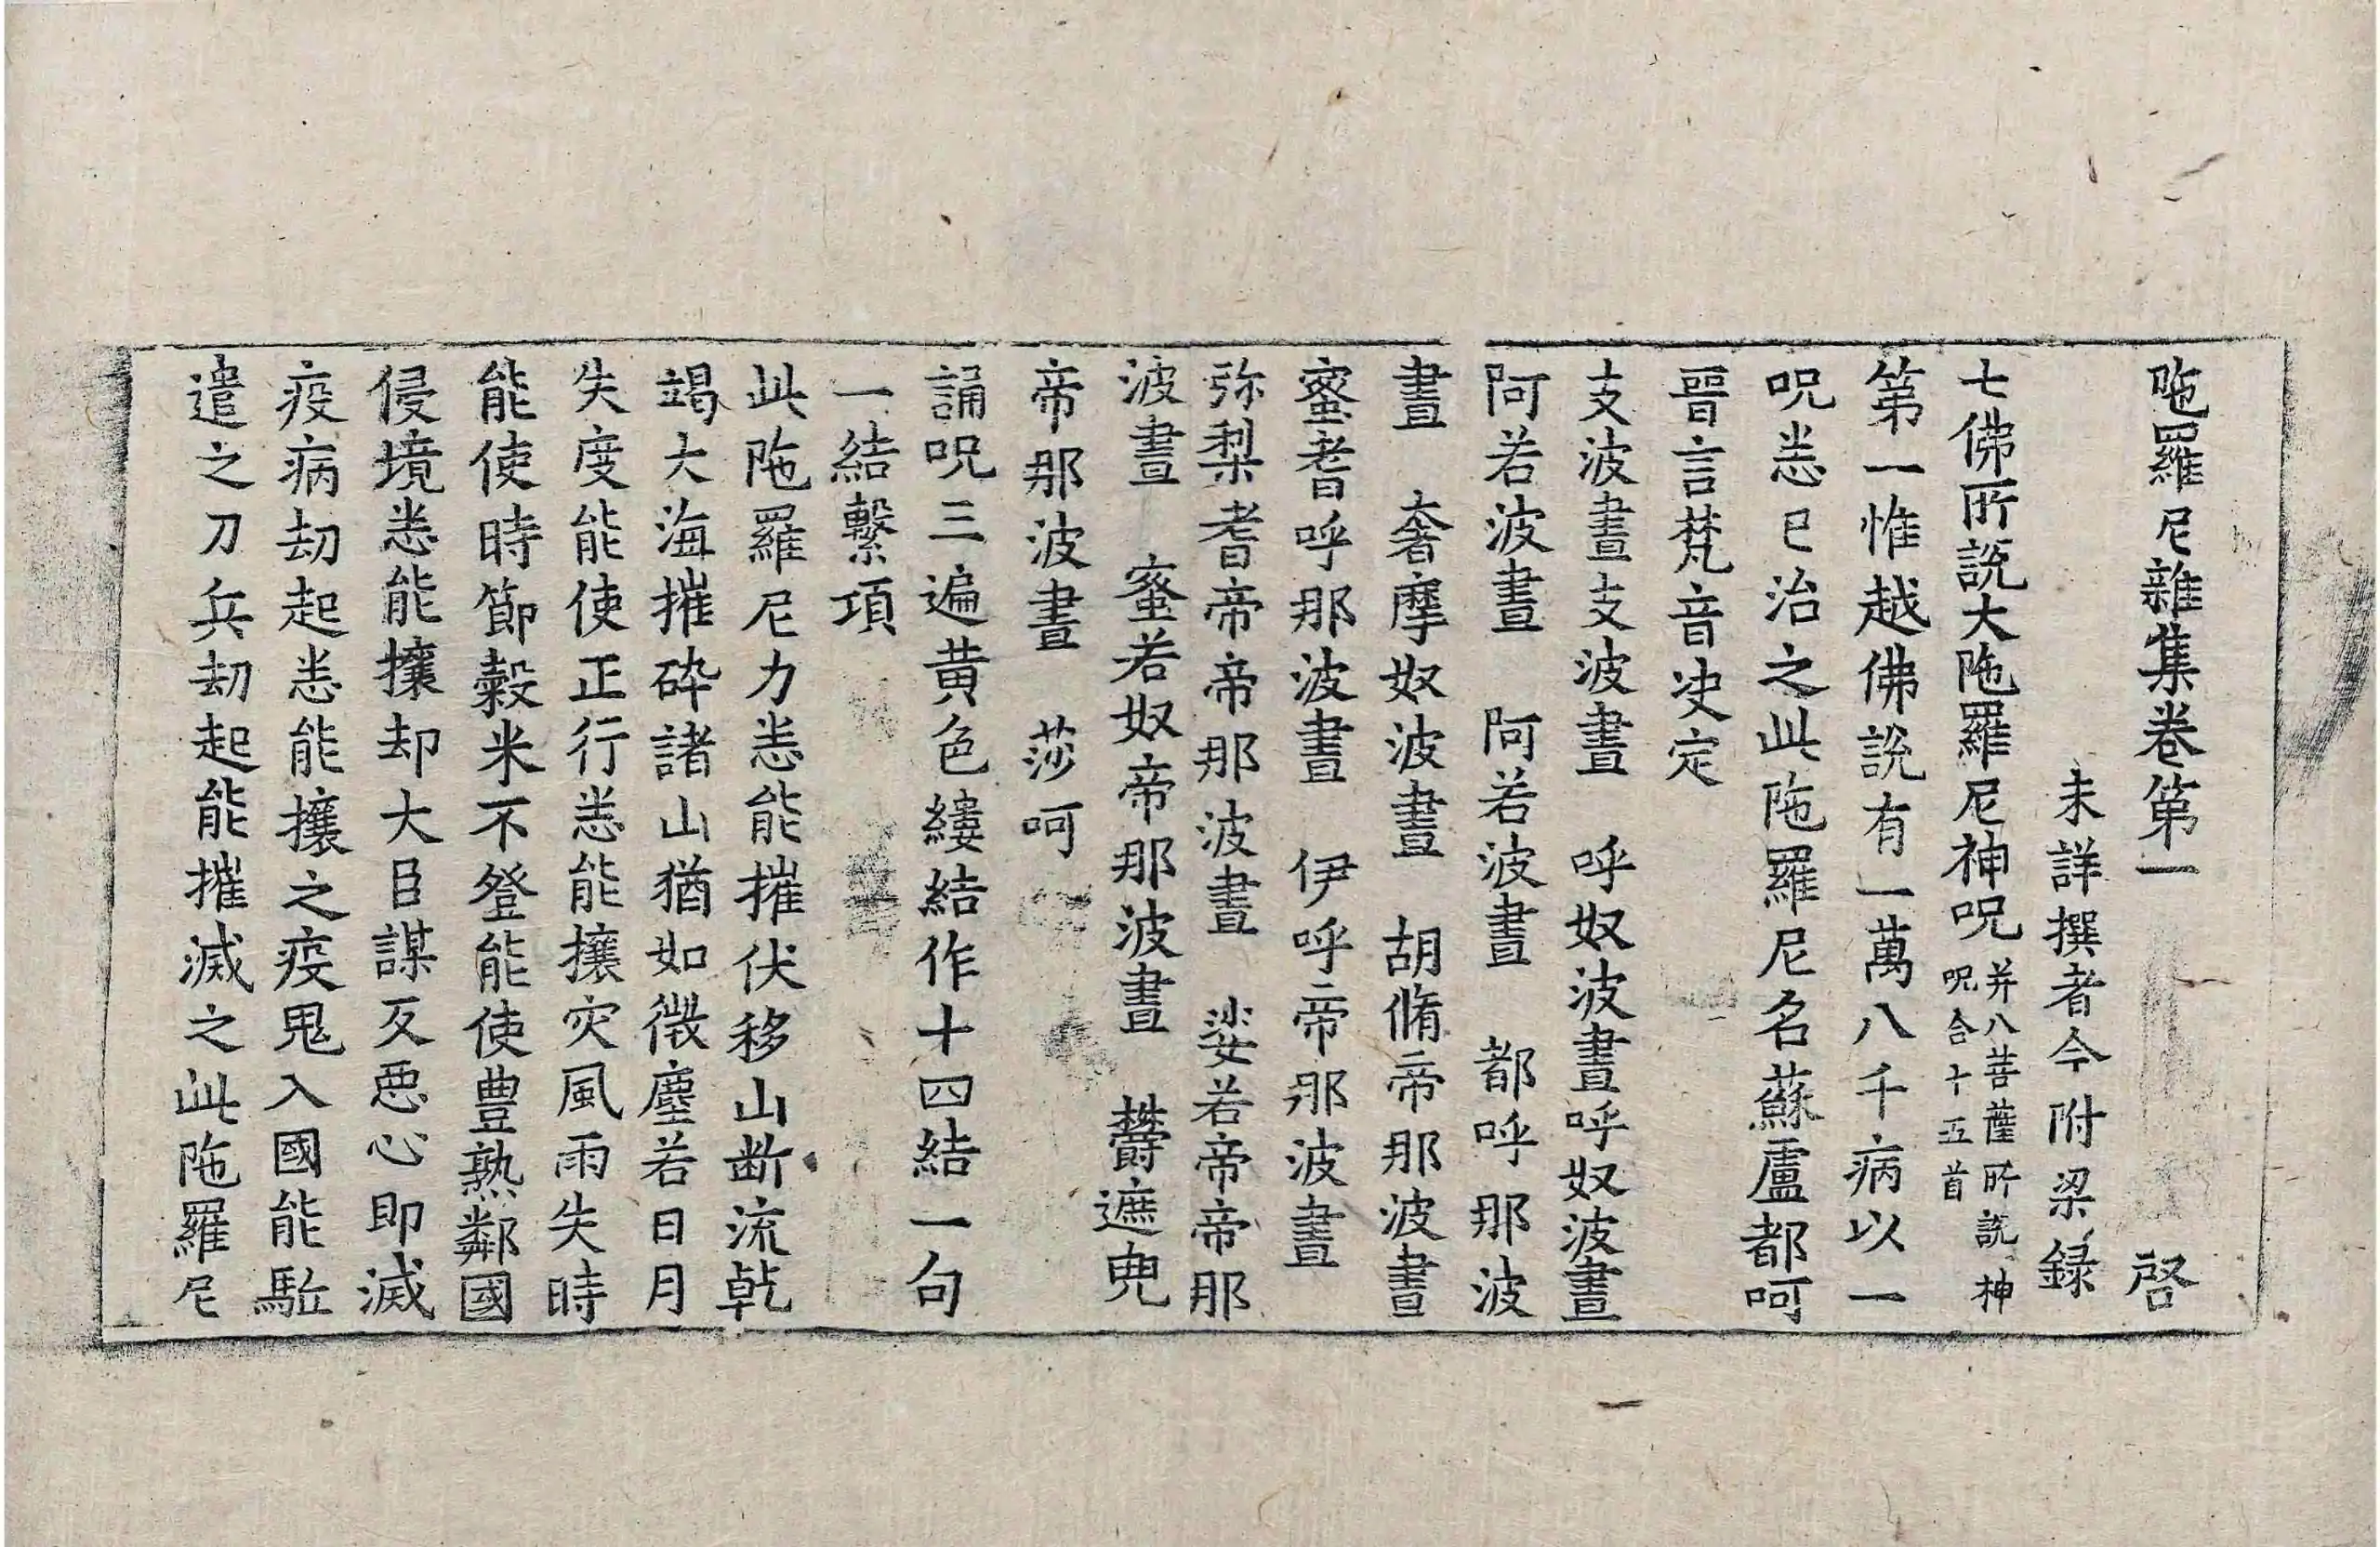 陁羅尼雜集卷第一 啓
未詳撰者今附梁録
七佛所說大陁羅尼神呪并八菩薩所說神呪合十五首
第一惟越佛說有一萬八千病以一
呪悉已治之此陁羅尼名蘇盧都呵
晉言梵音决定
支波晝支波晝 呼奴波晝呼奴波晝
阿若波晝 阿若波晝 都呼那波
晝 奢摩奴波晝 胡脩帝那波晝
蜜耆呼那波晝 伊呼帝那波晝
弥梨耆帝帝那波晝 娑若帝帝那
波晝 蜜若奴帝那波晝 欝遮兜
帝那波晝 莎呵
誦呪三遍黄色縷結作十四結一句
一結繫項
此陁羅尼力悉能摧伏移山断流乹
竭大海摧碎諸山猶如微塵若日月
失度能使正行悉能攘灾風雨失時
能使時節穀米不登能使豊熟鄰國
侵境悉能攘却大臣謀反惡心即滅
疫病劫起悉能攘之疫鬼入國能駈
遣之刀兵劫起能摧滅之此陁羅尼